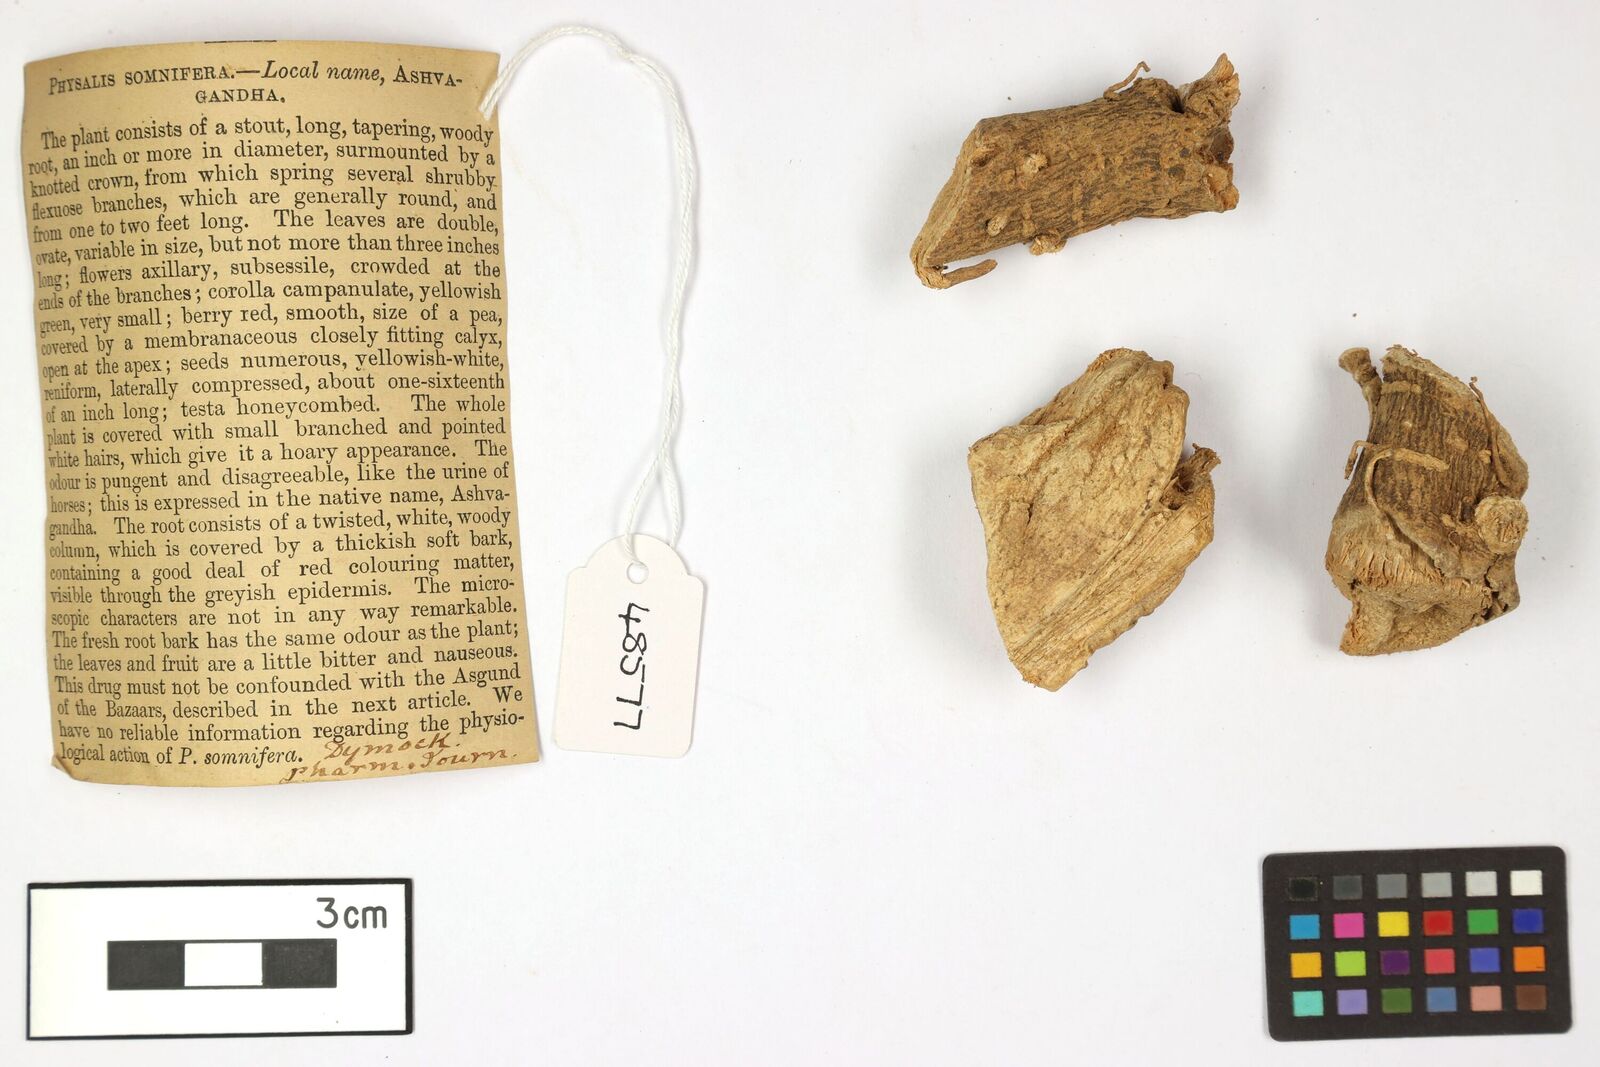 PHYSALIS SOMNIFERA.—Local name, ASHVA-
GANDHA.
The plant consists of a stout, long, tapering, woody
root, an inch or more in diameter, surmounted by a
knotted crown, from which spring several shrubby
flexuose branches, which are generally round, and
from one to two feet long. The leaves are double,
ovate, variable in size, but not more than three inches
long; flowers axillary, subsessile, crowded at the
ends of the branches; corolla campanulate, yellowish
green, very small; berry red, smooth, size of a pea,
covered by a membranaceous closely fitting calyx,
open at the apex; seeds numerous, yellowish-white,
reniform, laterally compressed, about one-sixteenth
of an inch long; testa honeycombed. The whole
plant is covered with small branched and pointed
white hairs, which give it a hoary appearance. The
odour is pungent and disagreeable, like the urine of
horses; this is expressed in the native name, Ashva-
gandha. The root consists of a twisted, white, woody
column, which is covered by a thickish soft bark,
containing a good deal of red colouring matter,
visible through the greyish epidermis. The micro-
scopic characters are not in any way remarkable.
The fresh root bark has the same odour as the plant;
the leaves and fruit are a little bitter and nauseous.
This drug must not be confounded with the Asgund
of the Bazaars, described in the next article. We
have no reliable information regarding the physio-
logical action of P. somnifera. Dymock.
Pharm. Journ.
48577
3cm